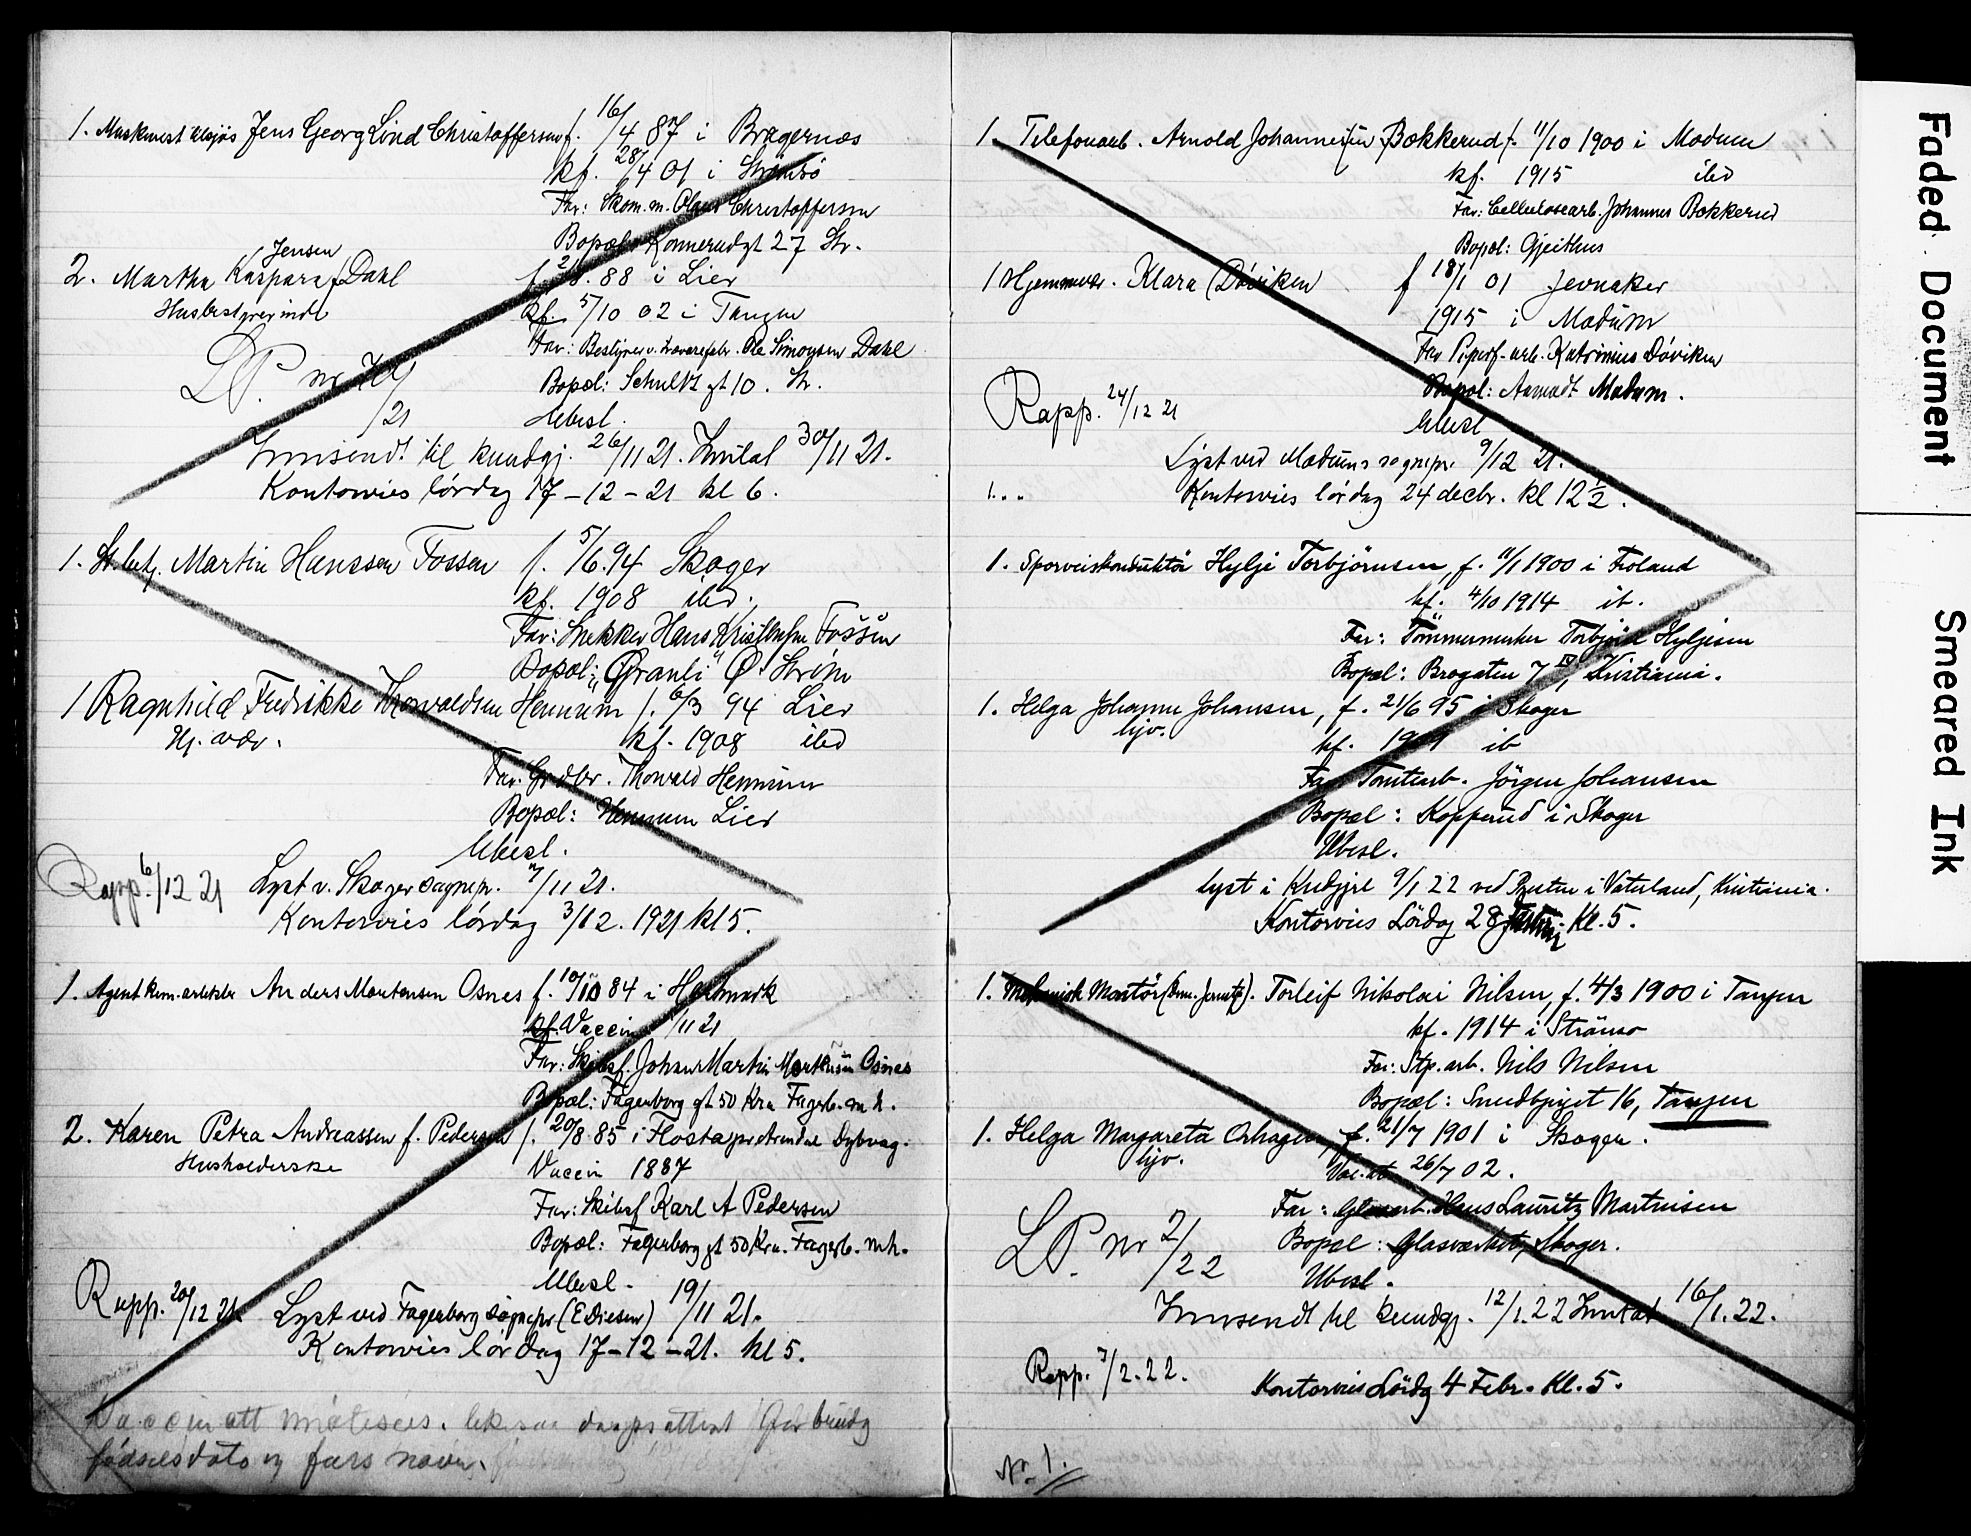 1. Maskinist tilsjös Jens Georg Lind Christoffersen f. 16/4 87 i Bragernæs
kf. 28/4 01 i Strömsö
Far: Skom.m. Olaus Christoffersen
Bopæl: Konnerudgt 27 Str.
Jensen
2. Martha Kaspara f. Dahl f. 2/8. 88 i Lier
Husbestyrerinde kf. 5/10 02 i Tangen
Far: Bestyrer v. Ole Simonsen Dahl
LP. nr Bopæl: Schultz gt 10. Str.
/21 Ubesl.
Innsendt til kundgj. 26/11 21. Inntat 30/11 21.
Kontorvies lördag 17-12-21 kl 6.
1. Martin Hanssen Fossen f. 5/6.94 Skoger
kf. 1908 ibid.
Far: Snekker Hans Kristensen Fossen
Bopæl: "Granli" Ø. Ström
1 Ragnhild Fredrikke Thorvaldsen Hennum f. 6/3 94 Lier
Hj. vær. kf. 1908 ibid
Far: Grdbr. Thorvald Hennum
Bopæl: Hennum Lier
Ubesl.
Rapp. 6/12 21 Lyst v. Skoger sognepr. /11 21.
Kontorvies lördag 3/12. 1921 kl 5.
1. Agent kem. artikler Anders Martensen Osnes f. 10/10 84 i
kf. Vaccin /11 21
Far: Skibsf. Johan Martin Osnes
Bopæl: Fagerborg gt 50 Kra Fagerb. mh.
2. Karen Petra Andreassen f. Pedersen f. 20/8.85 i Flosta pr Arendal Dybvag.
Husholderske Vaccin 1887
Far: Skibsf Karl A Pedersen
Bopæl: Fagerborg gt 50 Kra. Fagerb. mh.
Ubesl.
Rapp. 20/12 21. Lyst ved Fagerborg sognepr (E. Diesen) 19/11 21.
Kontorvies lördag 17-12-21. kl 5.
Vaccinatt dåpsattest for brudg
fødselsdato og fars navn.
1. Telefonarb. Arnold Johannessen Bokkerud f. 11/10 1900 i Modum
kf. 1915 ibid
Far: Cellulosearb. Johannes Bokkerud
Bopæl: Gjeithus
1 Hjemmevær. Klara Döviken f 18/1 01 Jevnaker
1915 i Modum
Far Katrinius Döviken
Bopæl: Aamodt Modum.
Rapp. 24/12 21 Ubesl
Lyst ved Modums sognepr. 9/12 21.
1. " " Kontorvies lördag 24 decbr. kl 12 1/2.
1. Sporveiskonduktör Hylje Torbjörnsen, f. 11/1 1900 i Froland
kf. 4/10 1914 ib.
Far: Tömmermerker Torbjörn Hyljesen
Bopæl: Brogaten 7 IV, Kristiania.
1. Helga Johanne Johansen, f. 21/6 95 i Skoger
hjv. kf. ib
Far Tomtearb. Jörgen Johansen
Bopæl: Kopperud i Skoger
Ubesl.
lyst i Kndgjel 9/1 22 ved Presten i Vaterland, Kristiania.
Kontorvies Lördag 28 Kl. 5.
1. Mekanisk Montör Torleif Nikolai Nilsen, f. 4/3 1900 i Tangen
kf. 1914 i Strömsø
Far: Stp. arb. Nils Nilsen
Bopæl: Smedbjerget 16, Tangen
1. Helga Margareta f. 21/7 1901 i Skoger.
hjv. 26/7 02.
Far: Glasarb. Hans Lauritz Martinsen
LP. nr 2/22 Bopæl: Glasverket, Skoger.
Ubesl.
Innsendt til kundgj. 12/1. 22 Inntat 16/1. 22.
Rapp. 7/2. 22. Kontorvies Lördg 4 Febr. Kl. 5.
Nr. 1.
Faded Document
Smeared Ink